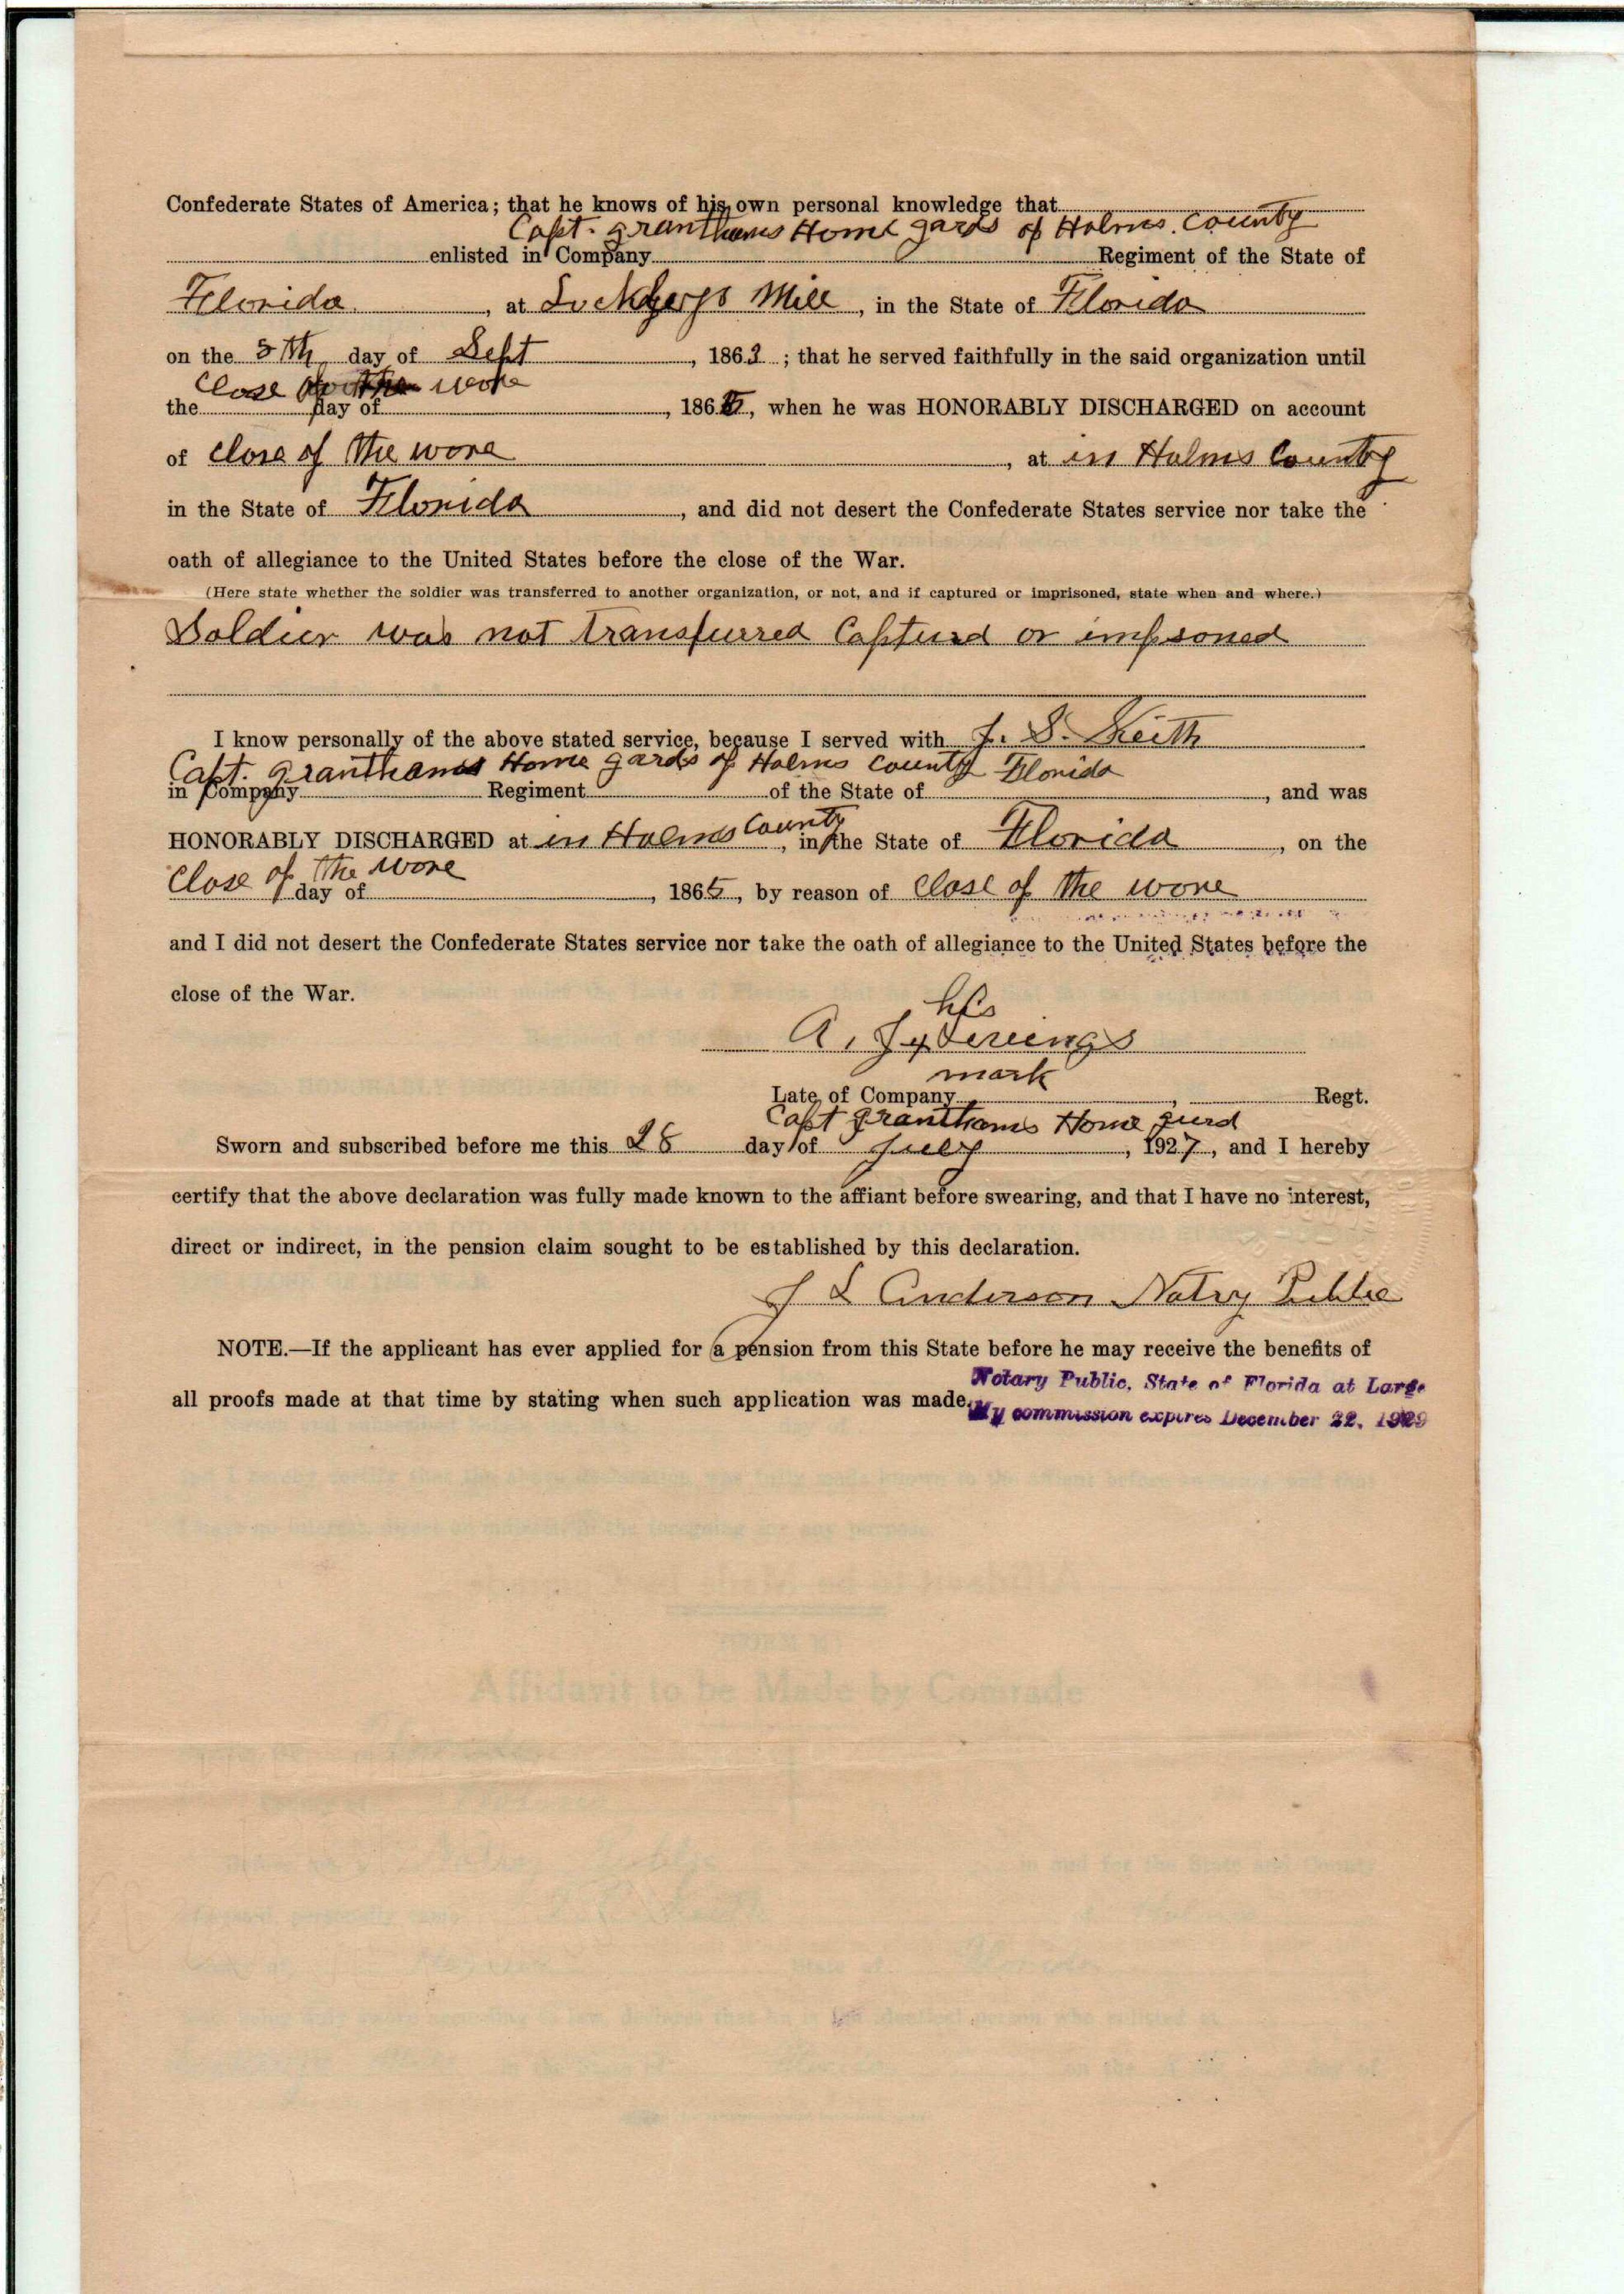 Confederate States of America; that he knows of his own personal knowledge that
Capt. Granthams Home gards of Holms. County
enlisted in Company Regiment of the State of
Florida, at Mill, in the State of Florida
on the 5th day of Sept, 1863; that he served faithfully in the said organization until
Close of the wore
the day of, 1865, when he was HONORABLY DISCHARGED on account
of close of the wore, at in Holms County
in the State of Florida, and did not desert the Confederate States service nor take the
oath of allegiance to the United States before the close of the War.
(Here state whether the soldier was transferred to another organization, or not, and if captured or imprisoned, state when and where.)
Soldier was not transfurred Capturd or impsoned
I know personally of the above stated service, because I served with J. S. Keith
Capt. Granthams Home gards of Holms County Florida
in Company Regiment of the State of, and was
HONORABLY DISCHARGED at in Holms County, in the State of Florida, on the
Close of the wore
day of, 1865, by reason of Close of the wore
and I did not desert the Confederate States service nor take the oath of allegiance to the United States before the
close of the War.
his
A. J x
mark
Late of Company, Regt.
Capt Granthams Home gurd
Sworn and subscribed before me this 28 day of July, 1927, and I hereby
certify that the above declaration was fully made known to the affiant before swearing, and that I have no interest,
direct or indirect, in the pension claim sought to be established by this declaration.
J L Anderson Notry Public
NOTE.—If the applicant has ever applied for a pension from this State before he may receive the benefits of
all proofs made at that time by stating when such application was made.
Notary Public, State of Florida at Large
My commission expires December 22, 1929
Affidavit to be Made by Comrade